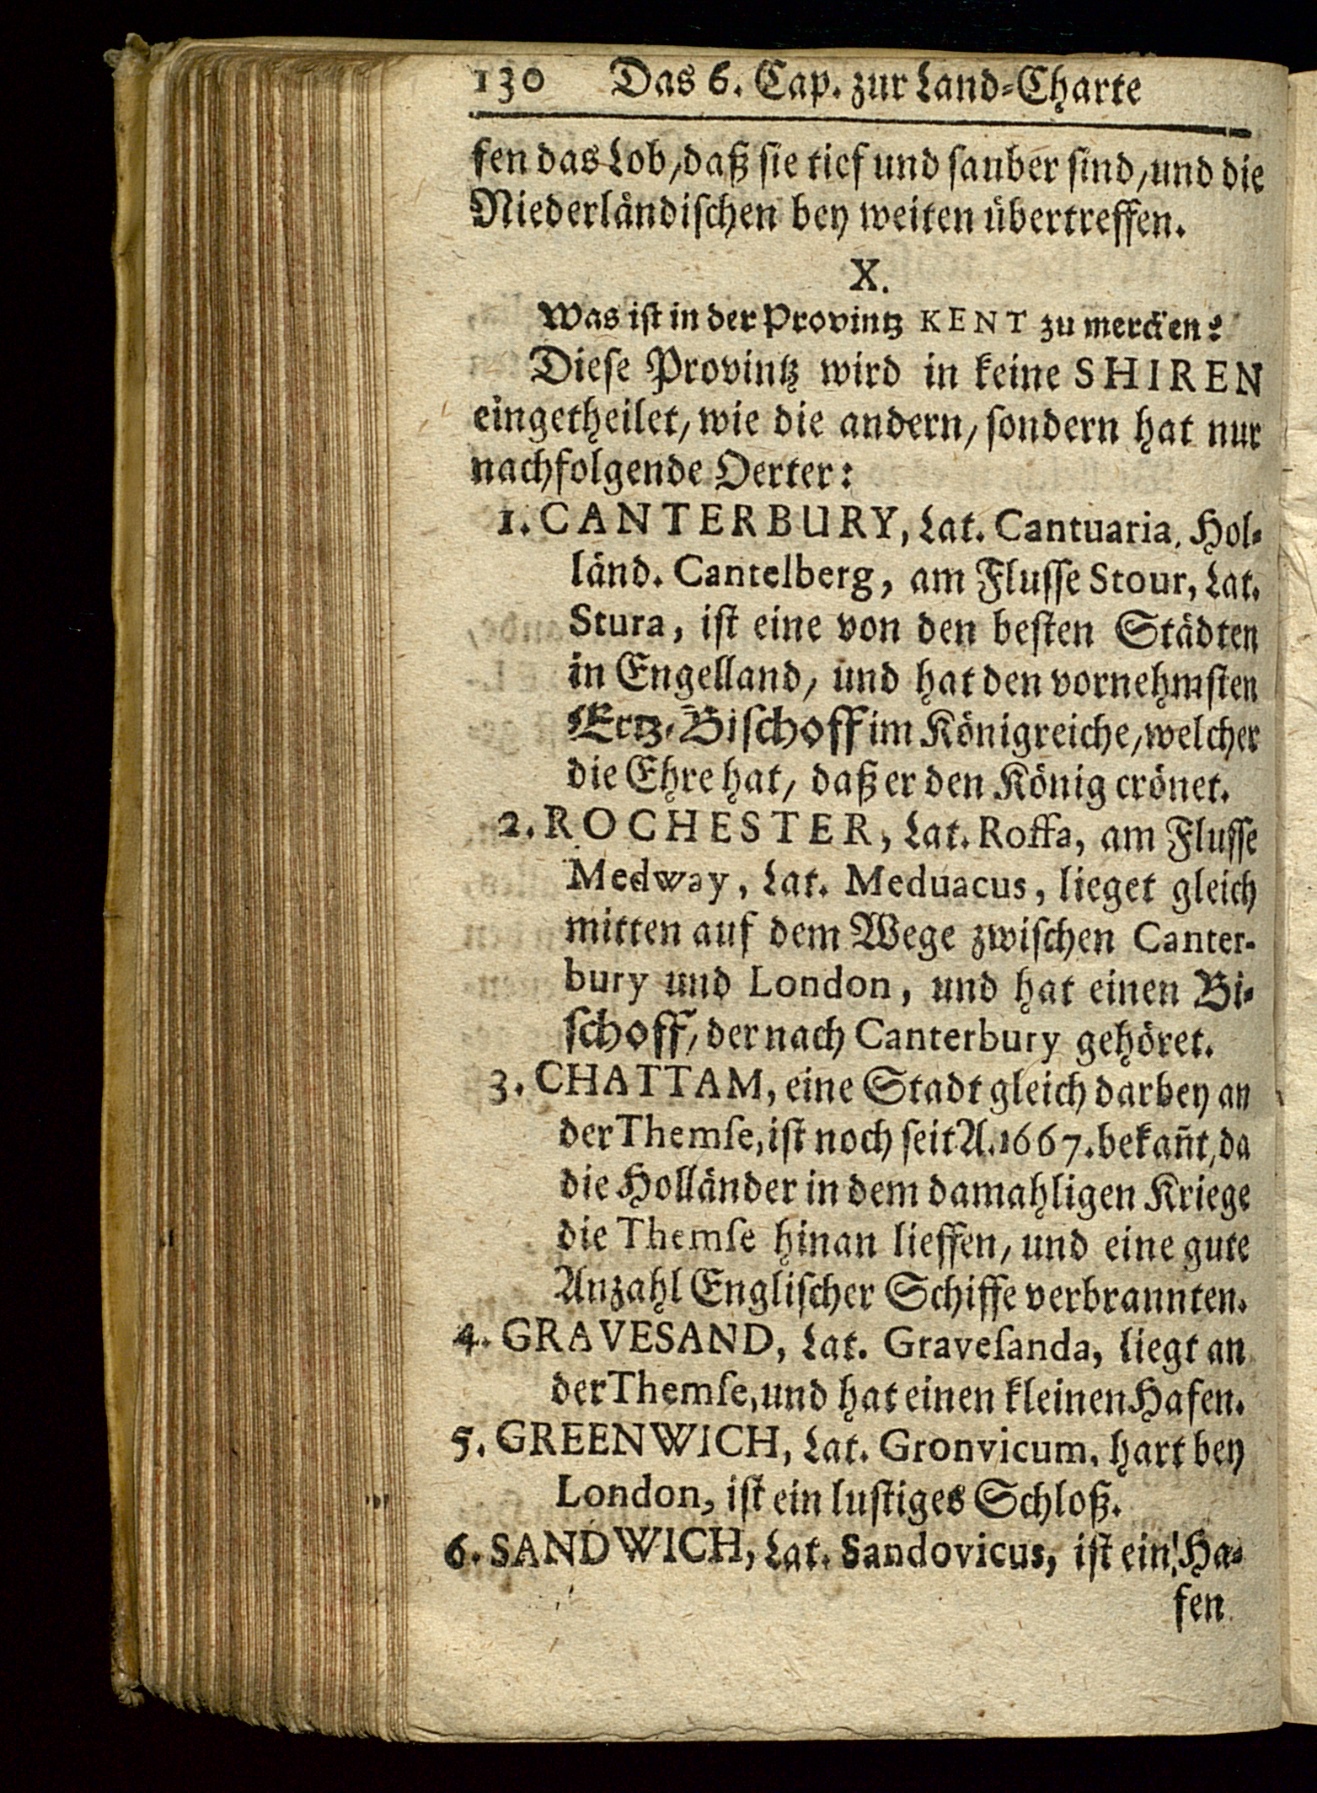 130 Das 6. Cap. zur Land-Charte
fen das Lob, daß sie tief und sauber sind, und die
Niederländischen bey weiten übertreffen.
X.
Was ist in der Provintz KENT zu mercken?
Diese Provintz wird in keine SHIREN
eingetheilet, wie die andern, sondern hat nur
nachfolgende Oerter:
1. CANTERBURY, Lat. Cantuaria, Hol-
länd. Cantelberg, am Flusse Stour, Lat.
Stura, ist eine von den besten Städten
in Engelland, und hat den vornehmsten
Ertz-Bischoff im Königreiche, welcher
die Ehre hat, daß er den König crönet.
2. ROCHESTER, Lat. Roffa, am Flusse
Medway, Lat. Meduacus, lieget gleich
mitten auf dem Wege zwischen Canter-
bury und London, und hat einen Bi-
schoff, der nach Canterbury gehöret.
3. CHATTAM, eine Stadt gleich darbey an
der Themse, ist noch seit A. 1667. bekañt, da
die Holländer in dem damahligen Kriege
die Themse hinan lieffen, und eine gute
Anzahl Englischer Schiffe verbrannten.
4. GRAVESAND, Lat. Gravesanda, liegt an
der Themse, und hat einen kleinen Hafen.
5. GREENWICH, Lat. Gronvicum, hart bey
London, ist ein lustiges Schloß.
6. SANDWICH, Lat. Sandovicus, ist ein Ha-
fen